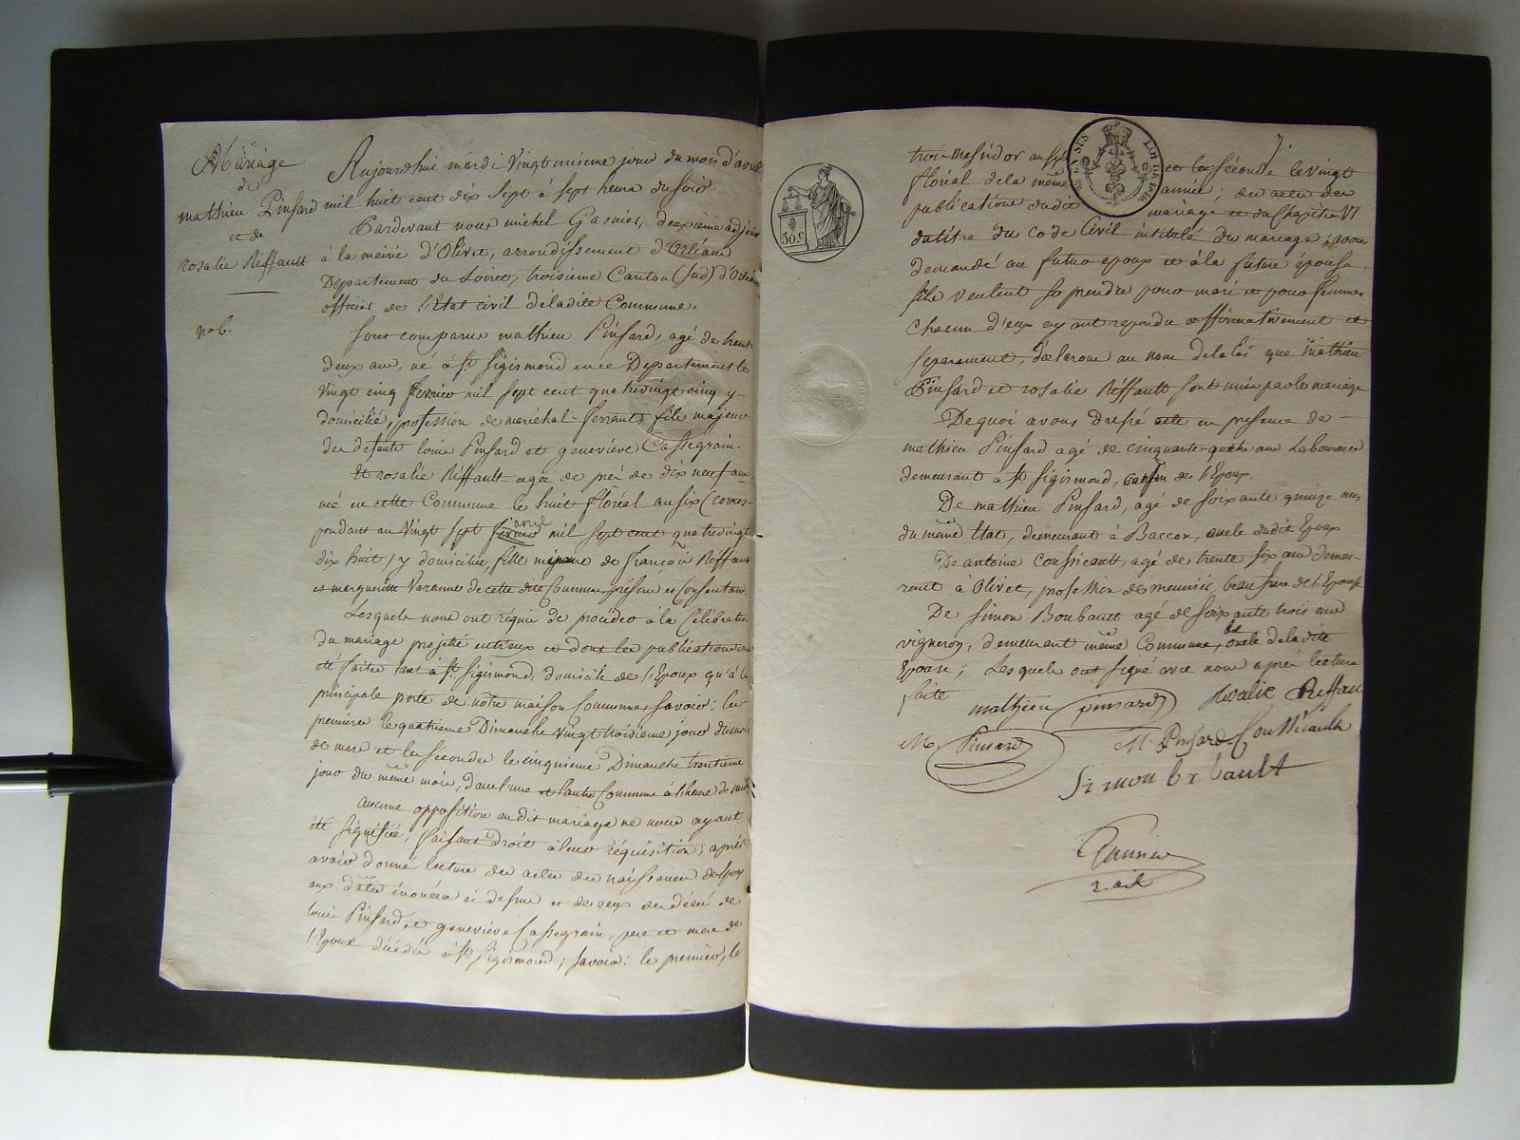 Mariage
de
mathieu Pinsard
et de
Rosalie Riffault
no 6.
Aujourdhui mardi Vingt uniéme jour du mois d'avril
mil huit cent dix Sept à Sept heures du Soir
Pardevant nous michel Gasnier, deuxieme adjoint
à la mairie d'Olivet, arrondissement d'Orléans
Département du Loiret, troisieme Canton (Sud) d'Orléans
officier de l'Etat civil de ladite Commune.
Sont comparus mathieu Pinsard, agé de trente
deux ans, né à St Sigismond en ce Département le
Vingt cinq fevrier mil Sept cent quatrevingt cinq y
domicilié, profession de maréchal-ferrant, fils majeur
des defunts louis Pinsard et geneviéve Cassegrain.
Et rosalie Riffault agée de près de dix neuf ans
née en cette Commune le huit floréal an Six (corres-
pondant au Vingt Sept fevrier avril mil Sept cent quatrevingt
dix huit) y domiciliée, fille mineure de françois Riffault
et marguerite Varenne de cette dite Commune présens et Consentans.
Lesquels nous ont requis de procéder à la Célébration
du mariage projetté entr'eux et dont les publications ont
été faites tant à St Sigismond domicile de l'Epoux qu'à la
principale porte de notre maison Commune Savoir: les
premieres le quatrieme Dimanche Vingt troisieme jour du mois
de mars et les Secondes le cinquieme Dimanche trentieme
jour du même mois, dans l'une et l'autre Commune à l'heure de midi
Aucune opposition audit mariage ne nous ayant
été Signifiée, faisant droit à leur réquisition; après
avoir donné lecture des actes de naissance des Epoux
aux dates énoncées ci dessus et de ceux de décès de
louis Pinsard et geneviéve Cassegrain, pere et mere de
l'Epoux décédés à St Sigismond; Savoir: le premier, le
7.
trois Messidor an Sept et la Seconde le Vingt
floréal de la même année; des actes de
publications dudit mariage et du Chapitre VI
du titre du Code Civil intitulé du mariage; avons
demandé au futur epoux et à la future épouse
S'ils veulent Se prendre pour mari et pour femme
chacun d'eux ayant repondu affirmativement et
Séparement, déclarons au nom de la loi que mathieu
Pinsard et rosalie Riffault Sont unis par le mariage
De quoi avons dressé acte en présence de
mathieu Pinsard agé de cinquante quatre ans Laboureur
demeurant à St Sigismond, cousin de l'Epoux.
De mathieu Pinsard, agé de Soixante quinze ans
du même Etat, demeurant à Baccon, oncle dudit Epoux
De antoine Cousicault, agé de trente Six ans demeu-
rant à Olivet, profession de meunier, beau frere de l'Epouse
De Simon Boubault agé de Soixante trois ans
vigneron, demeurant même Commune, oncle de ladite
Epouse; Lesquels ont Signé avec nous après lecture
faite
mathieu pinsard
Rosalie Riffau
M. Pinsard
M. Pinsard
Coussicault
Simon bxbault
Gasnier
2. adj.
30c